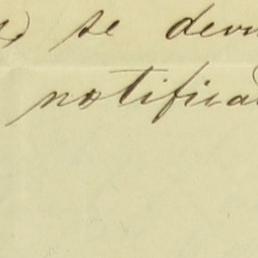 se devu
notifica